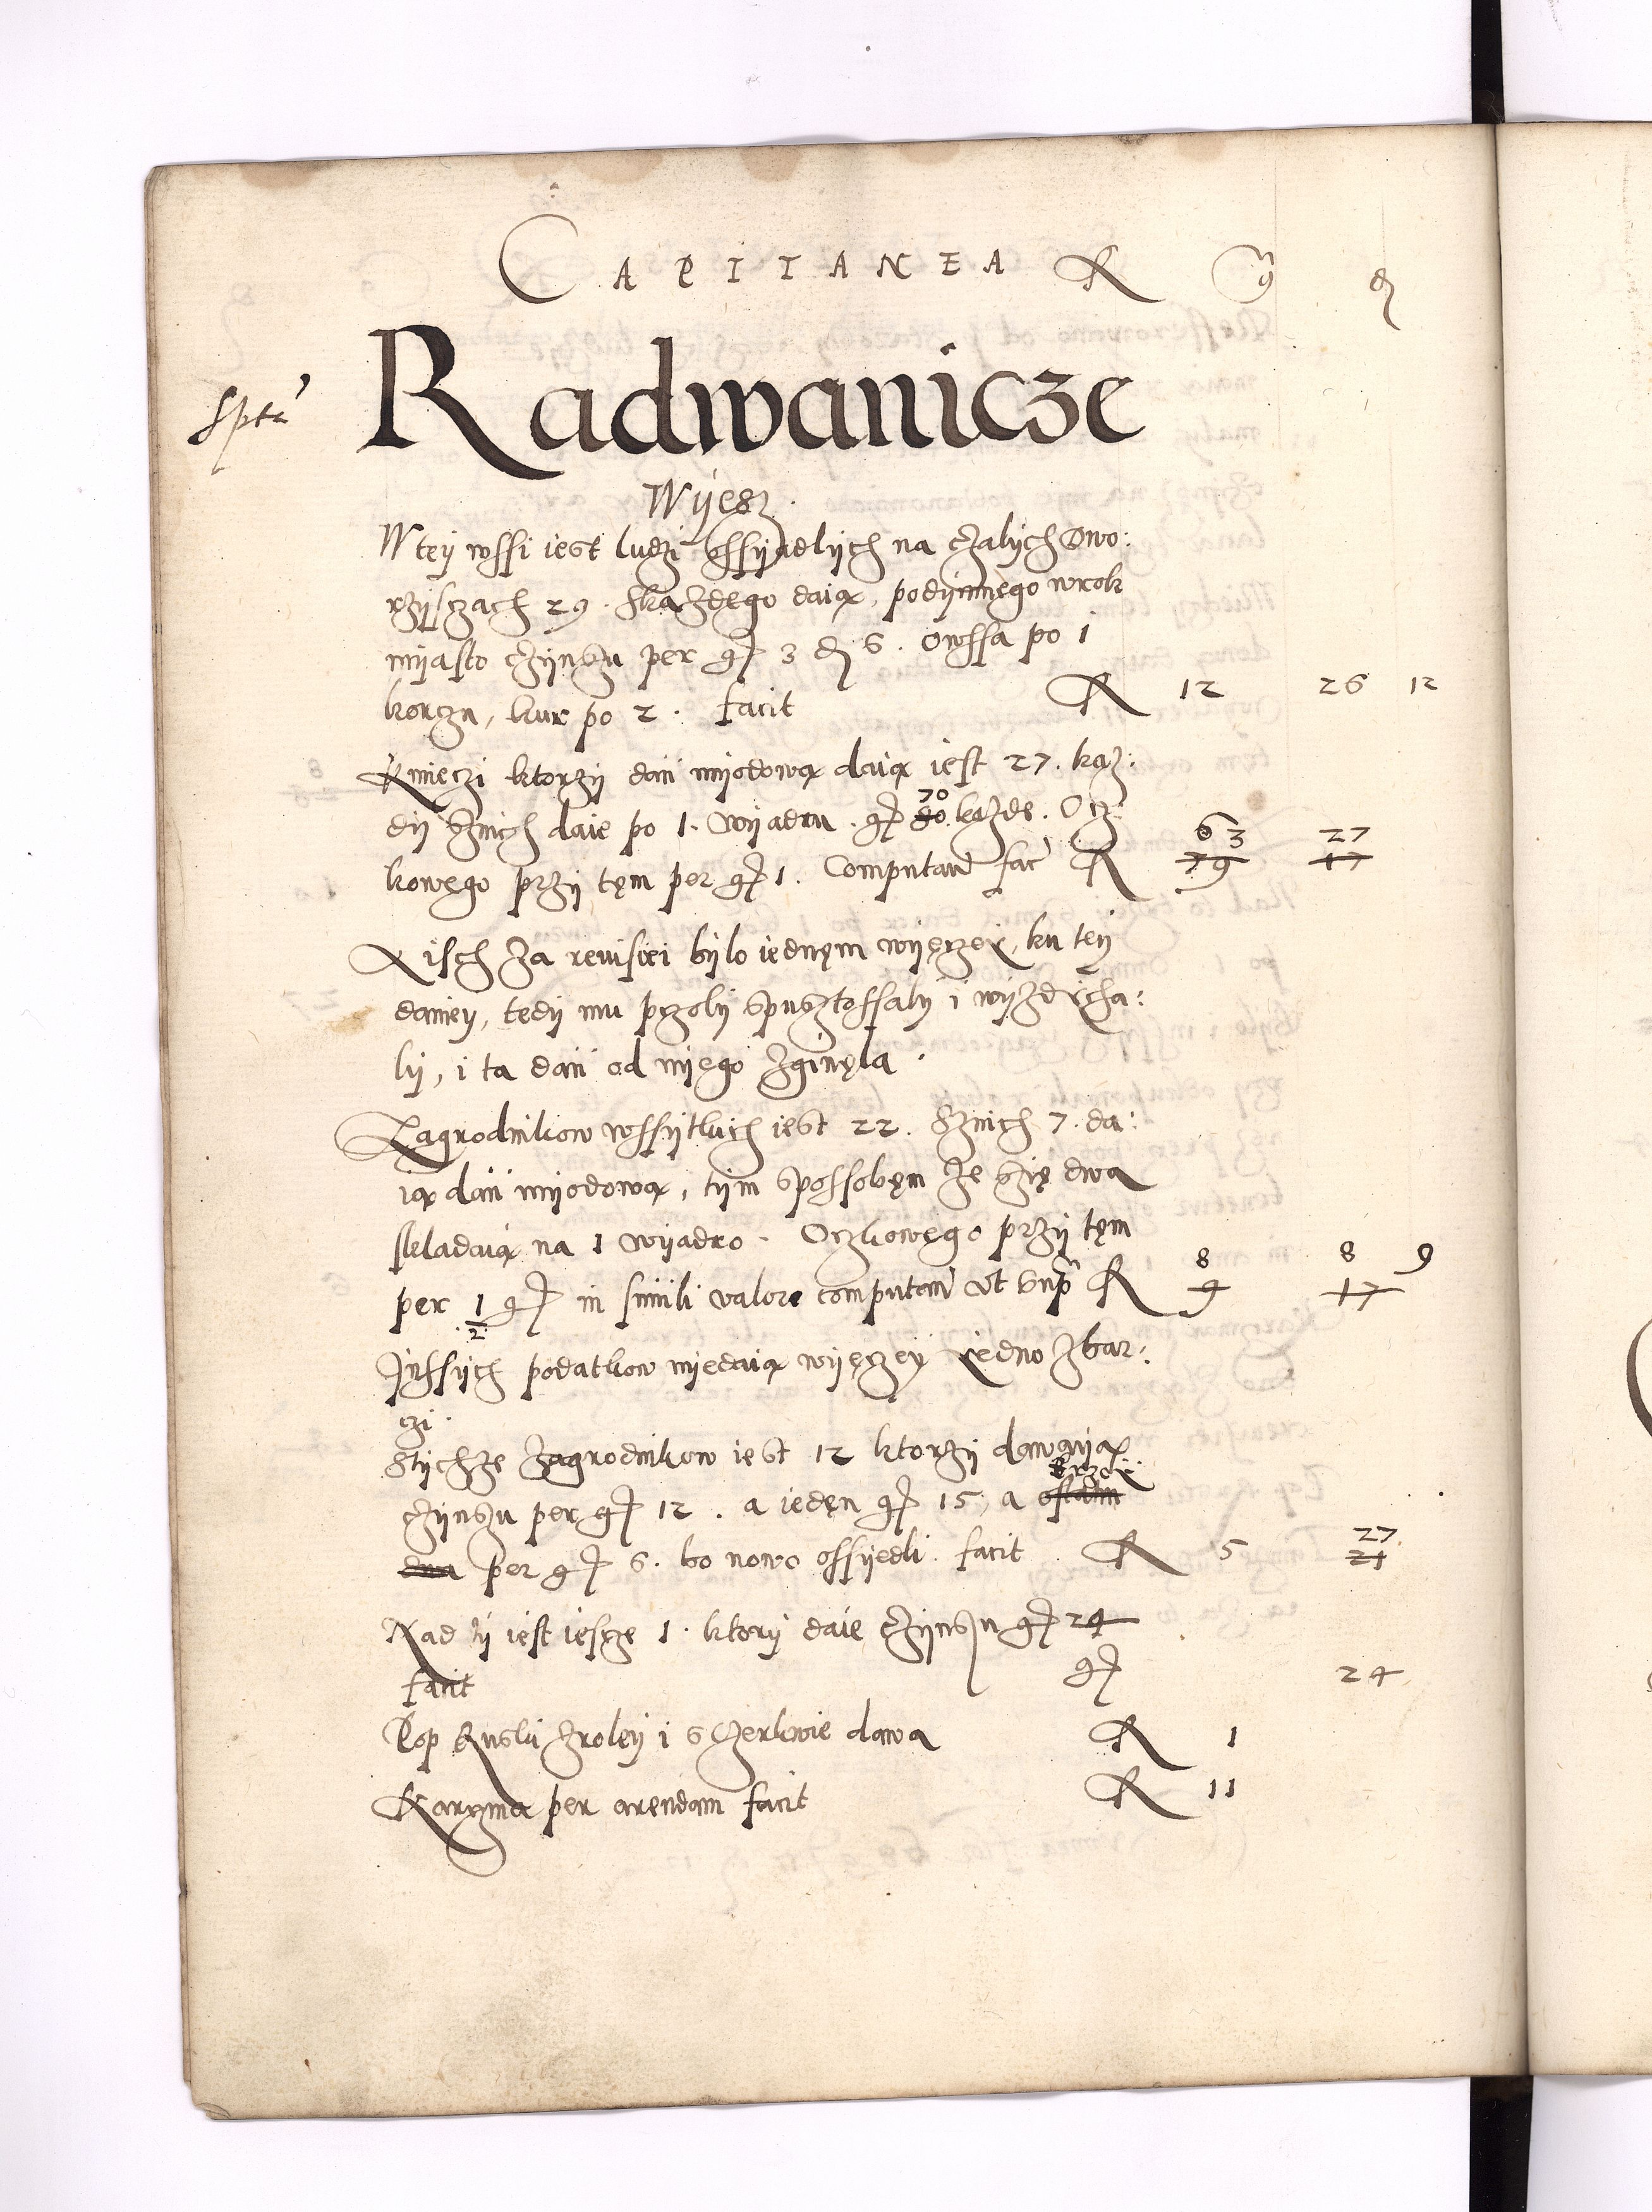 CAPITANEA
Radwanicze
Wÿesz.
W teÿ wssi iest ludzi ossÿadlÿch na czalÿch Dwo:
rzÿsczach 29. Skazdego daią, podÿmnego wrok
mÿasto czÿnszu per gr 3 d 6. Owssa po 1
korczu, kur po 2. facit R 12 26 12
Kmieczi ktorzÿ dań mÿodową daią iest 27. kaz:
dÿ sznich daie po 1. wÿadru. gr 70 kazde. Ocz
kowego przÿ tęm per gr 1. Computand fac R 63 27
79 17
Lisch za reuisiei bÿlo iednęm wÿęczeÿ, ku teÿ
danieÿ, tedÿ mu pczolÿ spusztossalÿ i wÿzdÿcha:
lÿ, i ta dań od niego zginęla.
Zagrodnikow wssÿtkich iest 22. Sznich 7. da:
ią dań mÿodową, tÿm spossobęm ze szię dwa
skladaią na 1 wÿadro. Oczkowego przÿ tęm
8 8 9
per 1/2 gr in simili valore computand ut supr R 9 17
Inssÿch podatkow niedaią wÿęczeÿ iedno zbar:
czi.
Stÿchze zagrodnikow iest 12 ktorzÿ dawaÿą
czÿnszu per gr 12. a iedęn gr 15, a
dwa per gr 6. bo nowo ossiedli. facit R 5 27
21
Nad tÿ iest iescze 1. ktorÿ daie czÿnszu gr 24
facit gr 24
Pop Ruski zroleÿ i s czerkwie dawa R 1
Karczma per arendam facit R 11